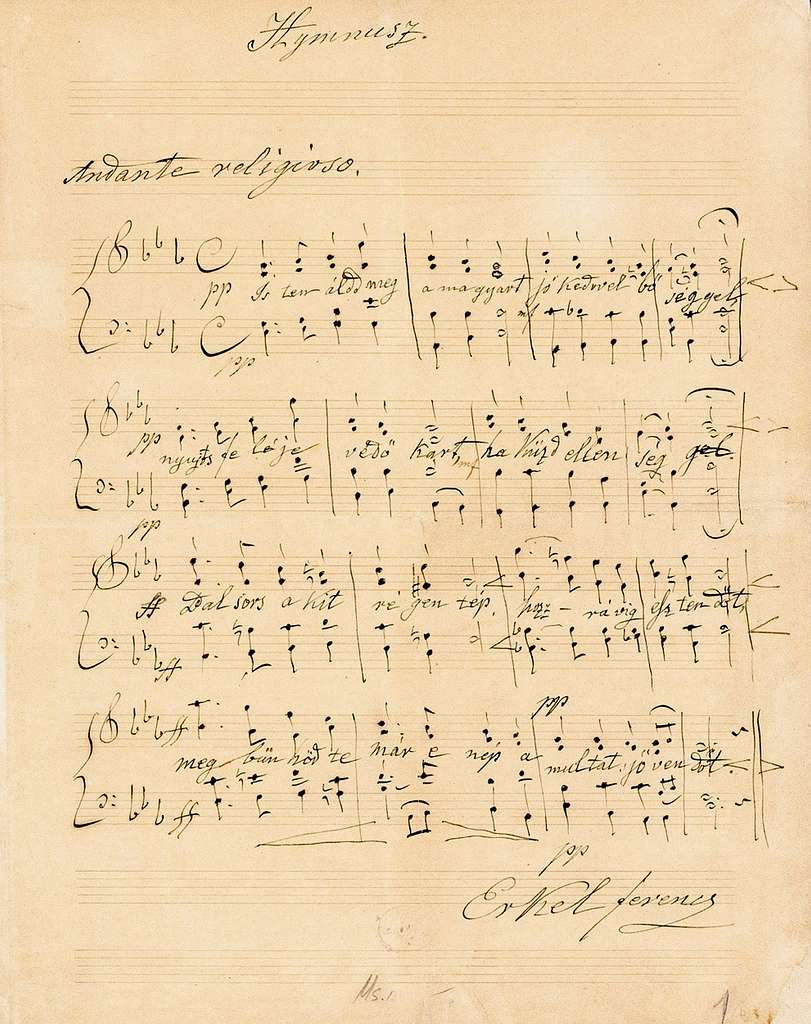 Hymnusz.
Andante religioso.
pp Is ten áldd meg a magyart jó kedvvel bő séggel
mf
pp
pp nyujts fe léje védő kart, mf ha küzd ellen ség gel.
pp
ff Bal sors a kit ré gen tép, hoz - rá víg esz ten dőt,
ff
pp
ff meg bűn hőd te már e nép a multat jöven dőt.
ff
pp
Erkel ferencz
Ms.
1